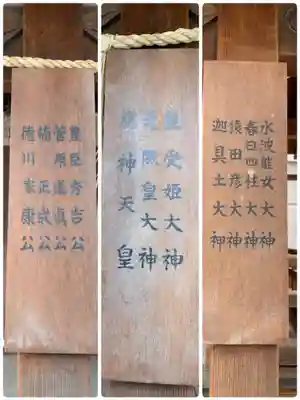 豊臣秀吉公
菅原道真公
楠正成公
徳川家康公
豊受姫大神
天照皇大神
應神天皇
水波能女大神
春日四柱大神
猿田彦大神
迦具土大神